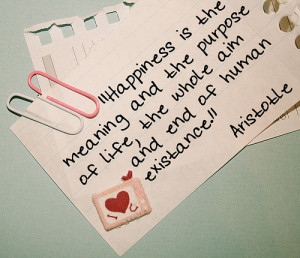 "Happiness is the
meaning and the purpose
of life, the whole aim
and end of human
existance."
Aristotle